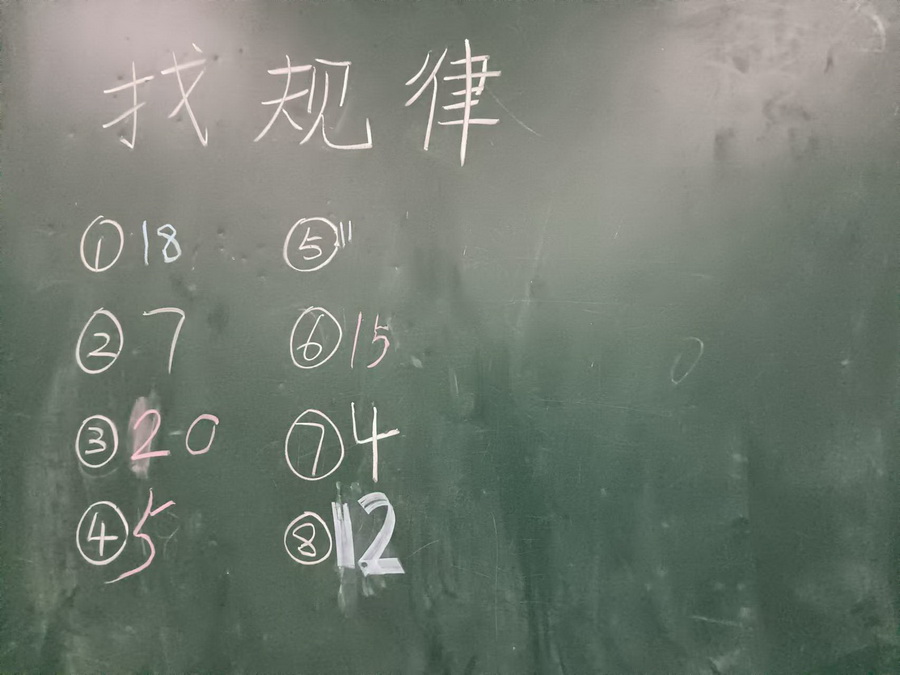 找规律
① 18
② 7
③ 20
④ 5
⑤ 11
⑥ 15
⑦ 4
⑧ 12